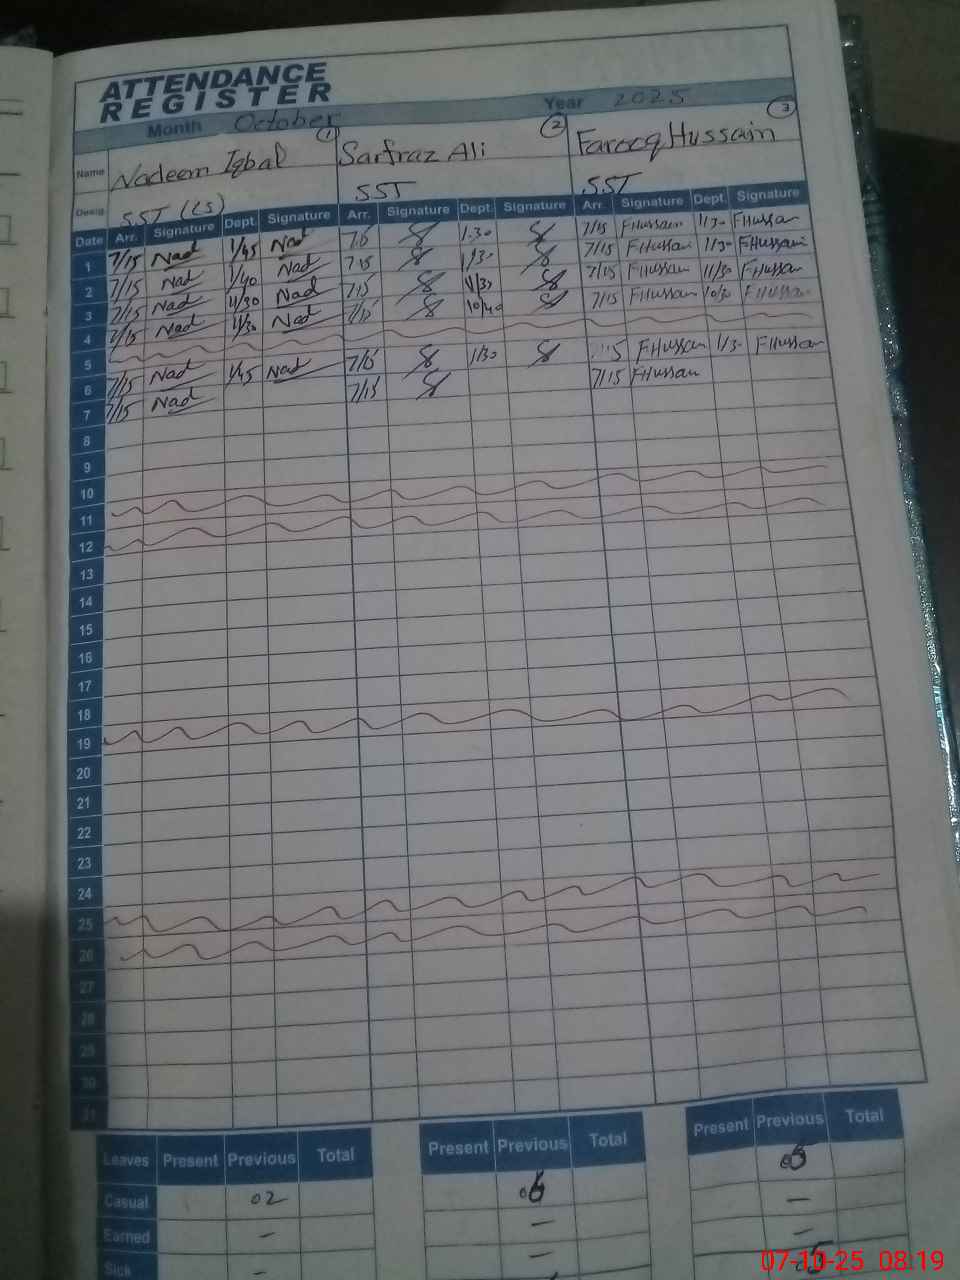 ATTENDANCE
REGISTER
Month October Year 2025
Name Nadeem Iqbal 1 Sarfraz Ali 2 Farooq Hussain 3
Desig. SST (CS) SST SST
Date Arr. Signature Dept. Signature Arr. Signature Dept. Signature Arr. Signature Dept. Signature
1 7/15 Nad 1/45 Nad 7:15 1:30 7/15 FHussain 1/30 FHussain
2 7/15 Nad 1/40 Nad 7:15 1/30 7/15 FHussain 1/30 FHussain
3 7/15 Nad 11/30 Nad 7:15 11/30 7/15 FHussain 11/30 FHussain
4 7/15 Nad 11/30 Nad 7/15 10/40 7/15 FHussain 10/30 FHussain
5
6 7/15 Nad 1/45 Nad 7/15 1/30 FHussain 1/30 FHussain
7 7/15 Nad 7/15 7/15 FHussain
8
9
10
11
12
13
14
15
16
17
18
19
20
21
22
23
24
25
26
27
28
29
30
31
Leaves Present Previous Total Present Previous Total Present Previous Total
Casual 02 05
Earned - - -
Sick - - 05
07-10-25 08:19